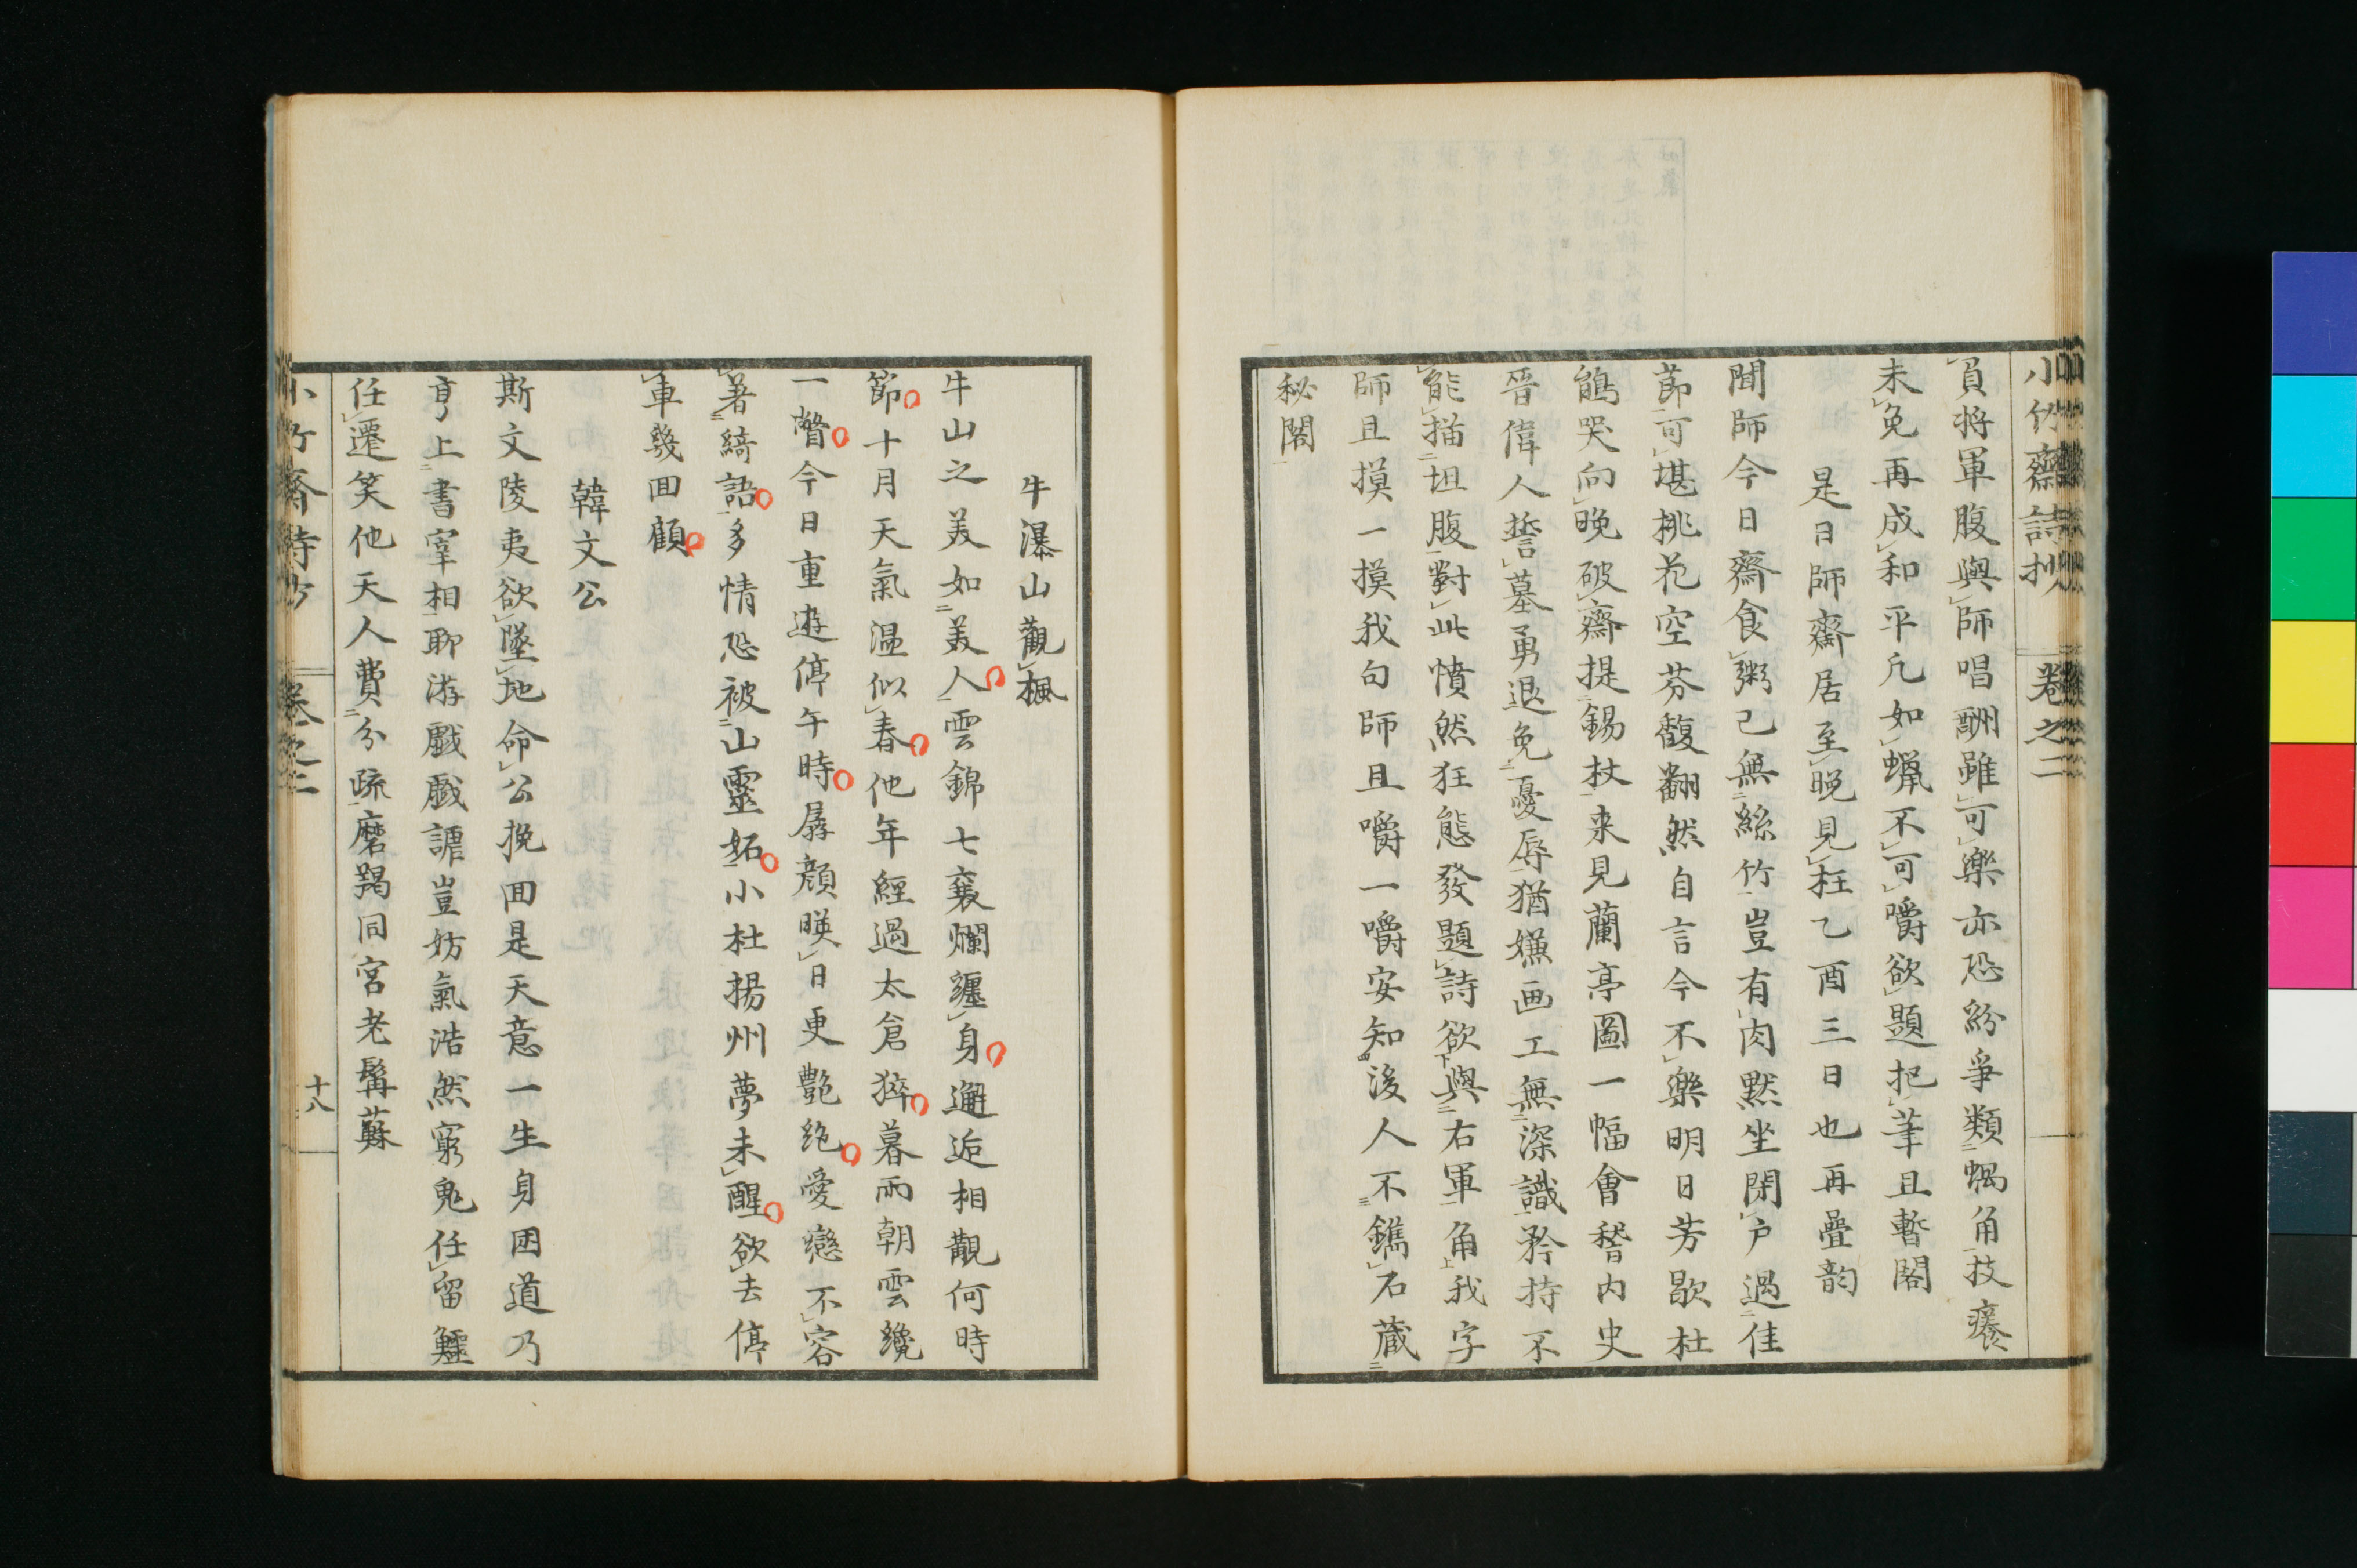 小竹齋詩抄 卷之二
負將軍腹與師唱酬雖可樂亦恐紛爭類蝸角技癢
未免再成和平凡如蝋不可嚼欲題把筆且暫閣
是日師齋居至晩見枉乙酉三日也再疊韵
聞師今日齋食粥已無絲竹豈有肉黙坐閉戸過佳
節可堪桃花空芬馥翻然自言今不樂明日芳歇杜
鵑哭向晩破齋提錫杖来見蘭亭圖一幅會稽内史
晉偉人誓墓勇退免憂辱猶嫌画工無深識矜持不
能描坦腹對此憤然狂態發題詩欲與右軍角我字
師且摸一摸我句師且嚼一嚼安知後人不鐫石蔵
秘閣
牛瀑山觀楓
牛山之美如美人雲錦七襄爛纏身邂逅相觀何時
節十月天氣温似春他年經過太倉猝暮雨朝雲纔
一瞥今日重遊停午時孱顔暎日更艶絶愛戀不容
著綺語多情恐被山靈妬小杜揚州夢未醒欲去停
車幾回顧
韓文公
斯文陵夷欲墜地命公挽回是天意一生身困道乃
亨上書宰相聊游戯戯謔豈妨氣浩然窮鬼任留鱷
任遷笑他天人費分疏磨羯同宮老髯蘇
小竹齋詩抄 卷之二 十八